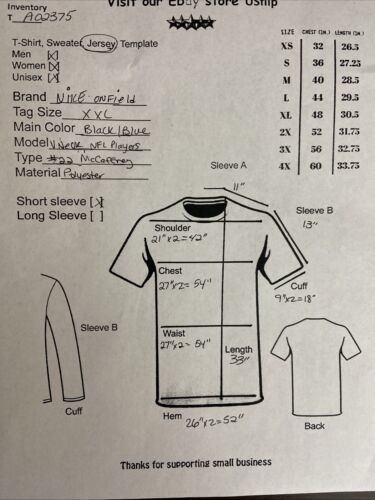 Visit our Ebay store Uship
Inventory
T A02375
T-Shirt, Sweater, Jersey Template
Men [X]
Women [X]
Unisex [X]
Brand NIKE onField
Tag Size XXL
Main Color Black/Blue
Model V Neck, NFL Players
Type #22 McCaffrey
Material Polyester
Short sleeve [X]
Long Sleeve [ ]
SIZE CHEST (IN.) LENGTH (IN.)
XS 32 26.5
S 36 27.25
M 40 28.5
L 44 29.5
XL 48 30.5
2X 52 31.75
3X 56 32.75
4X 60 33.75
Sleeve A
11"
Sleeve B
13"
Shoulder
21"x2=42"
Chest
27"x2=54"
Cuff
9"x2=18"
Waist
27"x2=54"
Length
33"
Sleeve B
Cuff
Hem 26"x2=52"
Back
Thanks for supporting small business